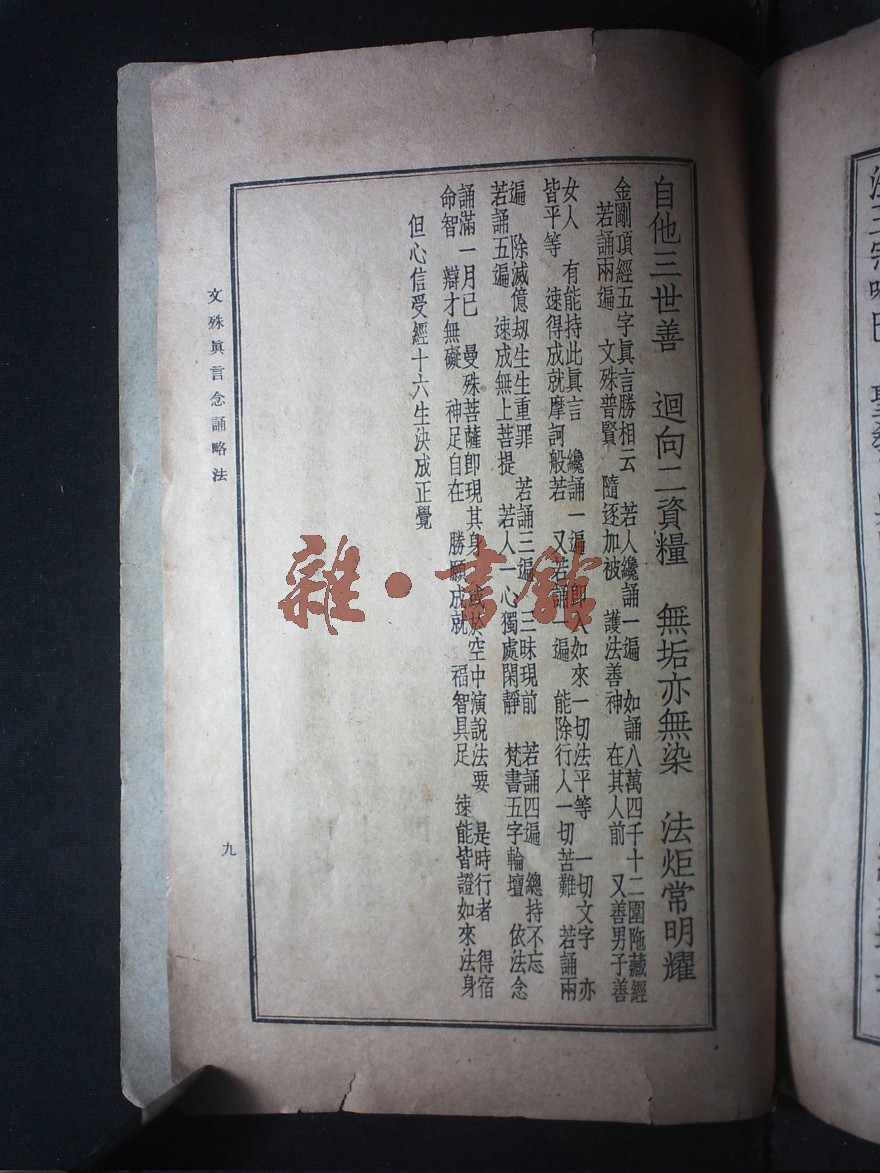 自他三世善　迴向二資糧　無垢亦無染　法炬常明耀
金剛頂經五字眞言勝相云　若人纔誦一遍　如誦八萬四千十二圍陁藏經
若誦兩遍　文殊普賢　隨逐加被　護法善神　在其人前　又善男子善
女人　有能持此眞言　纔誦一遍　即入如來一切法平等　一切文字　亦
皆平等　速得成就摩訶般若　又若誦一遍　能除行人一切苦難　若誦兩
遍　除滅億刧生生重罪　若誦三遍　三昧現前　若誦四遍　總持不忘
若誦五遍　速成無上菩提　若人一心獨處閑靜　梵書五字輪壇　依法念
誦滿一月已　曼殊菩薩即現其身　或於空中演說法要　是時行者　得宿
命智　辯才無礙　神足自在　勝願成就　福智具足　速能皆證如來法身
但心信受經十六生決成正覺
文殊眞言念誦略法
九
雜·書館